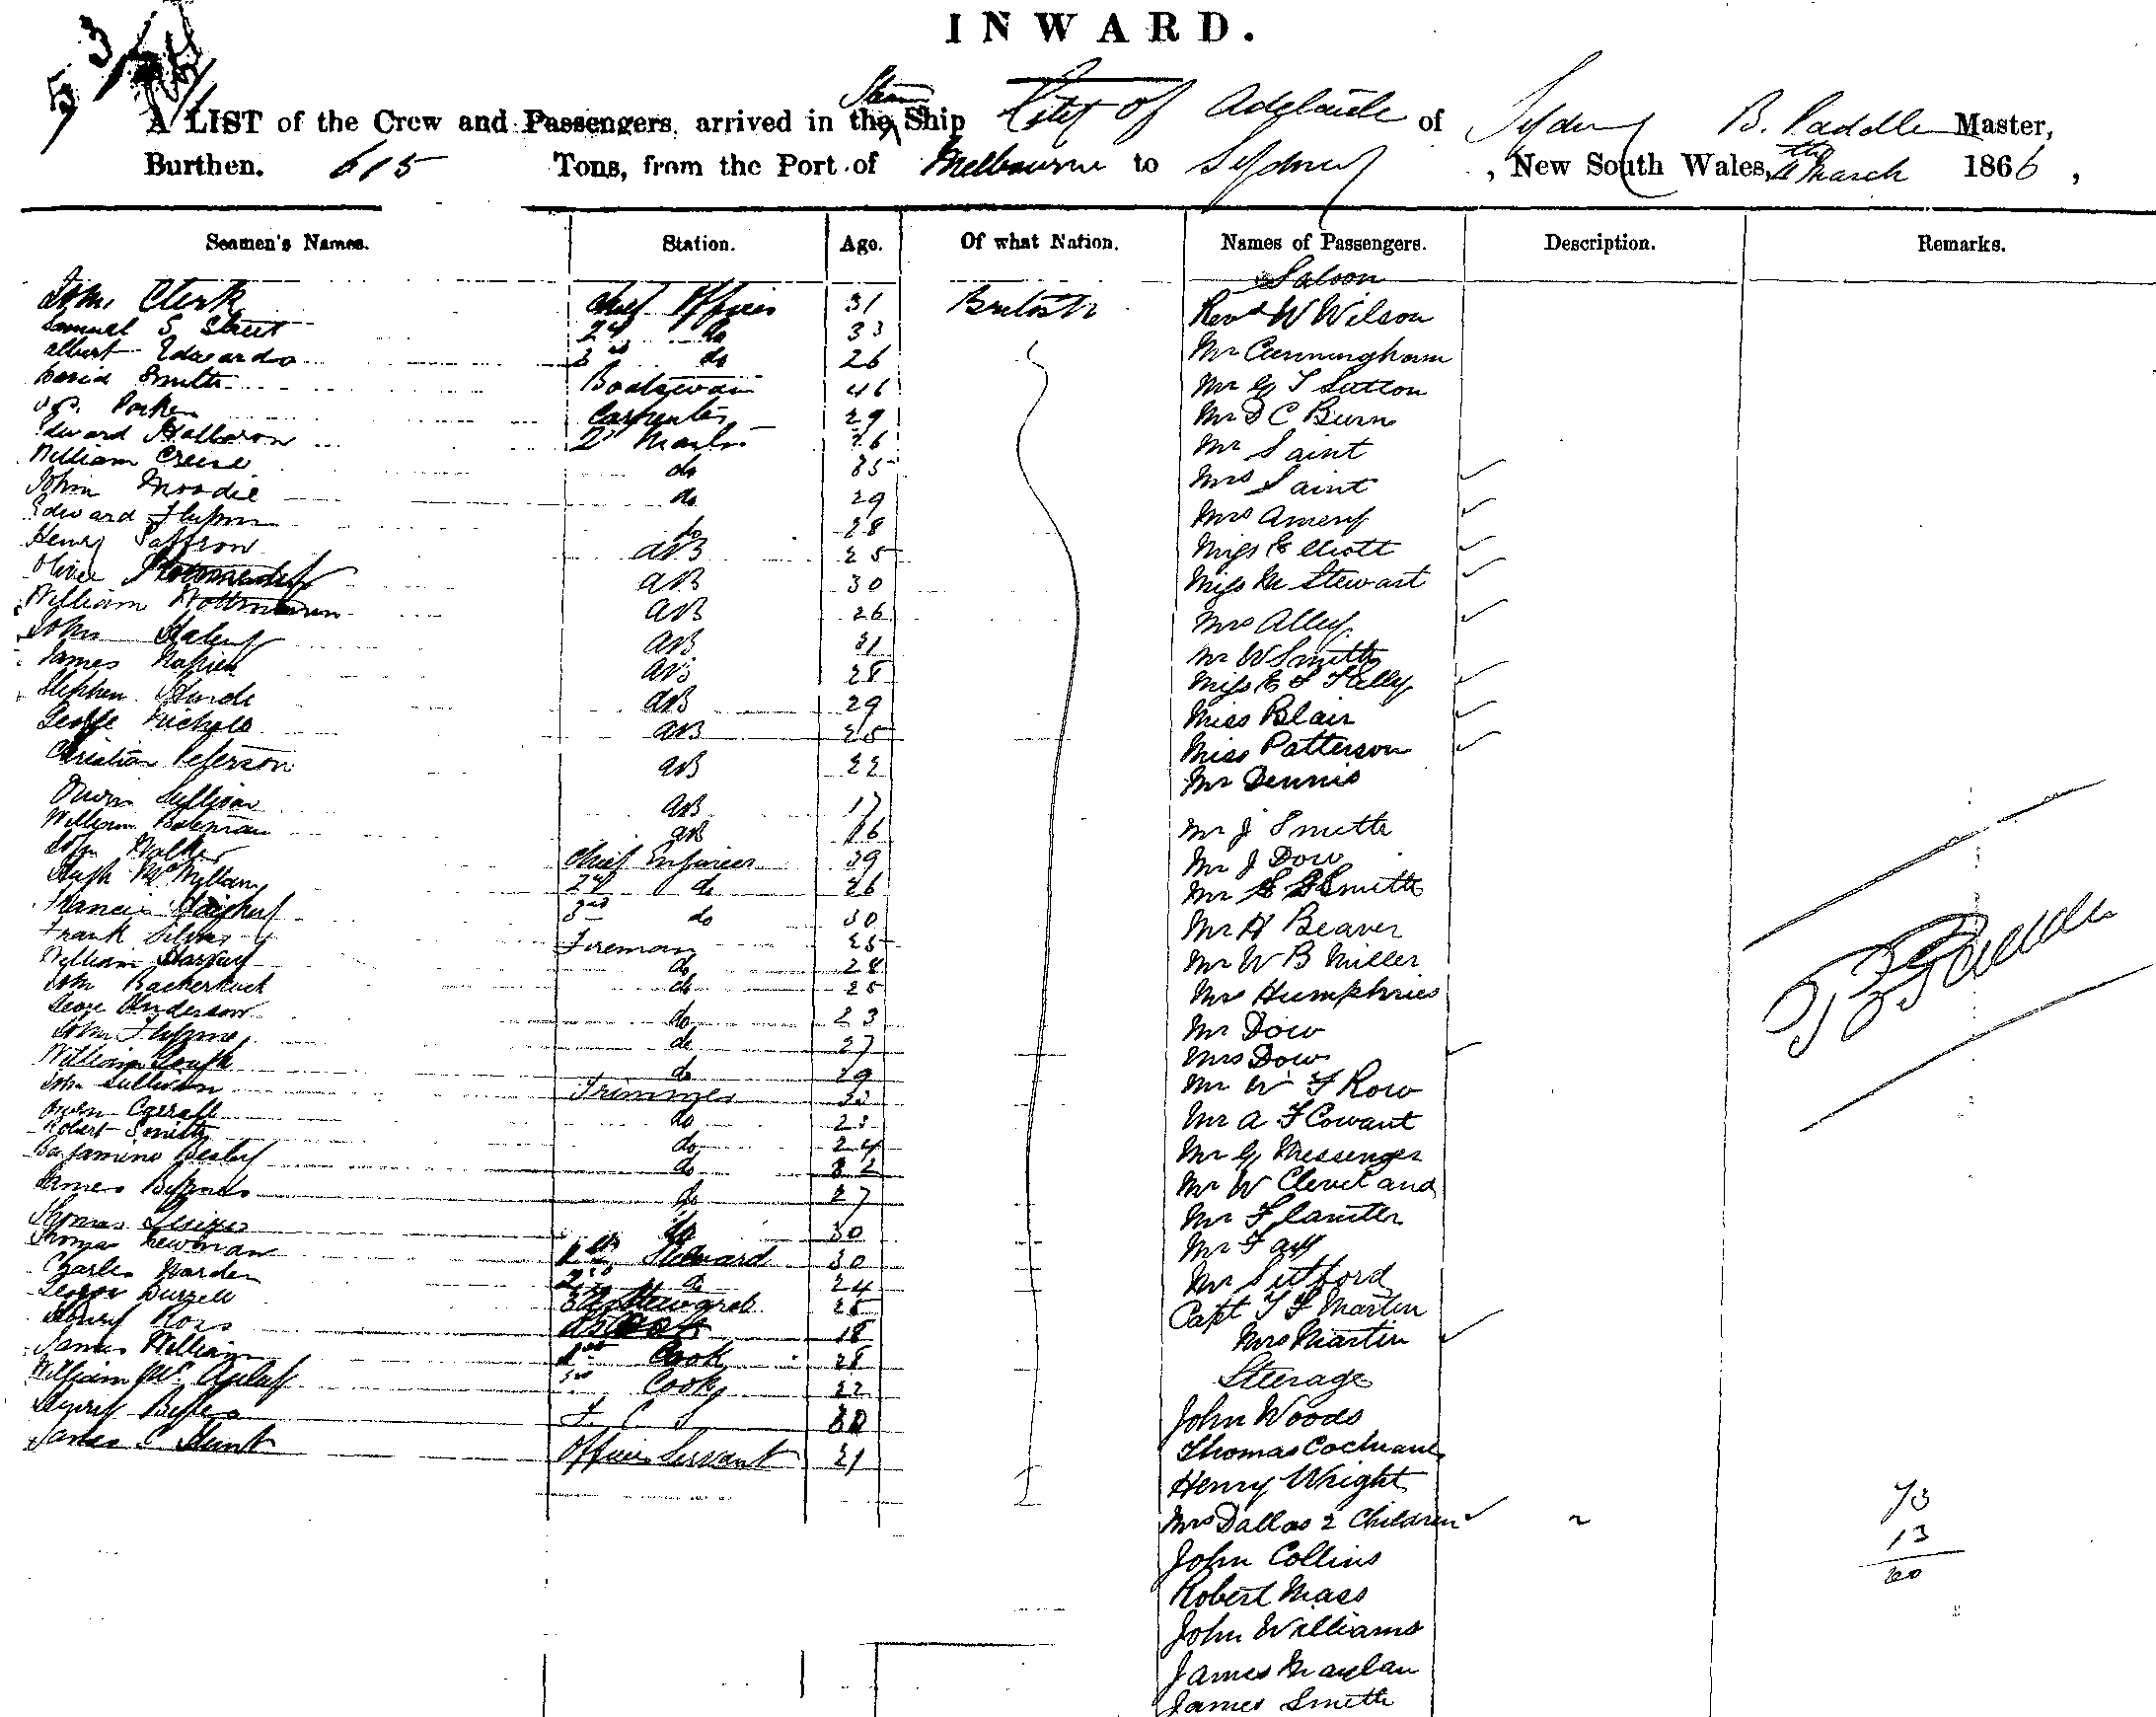 INWARD.
A LIST of the Crew and Passengers arrived in the Steam Ship City of Adelaide of Sydney B. Paddle Master,
Burthen. 615 Tons, from the Port of Melbourne to Sydney, New South Wales, March 1866,
Seamen's Names. Station. Age. Of what Nation. Names of Passengers. Description. Remarks.
Saloon
John Clerk Chief Officer 31 British Revd W Wilson
Samuel S Street 2nd do 33 Mr Cunningham
Albert Edwards 3rd do 26 Mr G T Sutton
David Smith Boatswain 46 Mr D C Burn
Parker Carpenter 29 Mr Saint
Edward Halloron 26
William Creese do 35 Mrs Saint
John Moodie do 29 Mrs Amery
Edward do 28 Miss Elliott
Henry Saffron AB 25 Miss M Stewart
Oliver AB 30 Mrs Alley
William AB 26 Mr W Smith
John Haley AB 31 Miss E F Kelly
James Napier AB 28 Miss Blair
Stephen Hinde AB 29 Miss Patterson
George Nicholls AB 25 Mr Dennis
Christian Peterson AB 22
Owen Sullivan AB 17 Mr J Smith
William Bateman AB 16 Mr J Dow
John Walker Chief Engineer 39 Mr Smith
Hugh McMillan 2nd do 26 Mr H Beaver
Francis 3rd do 30 Mr W B Miller
Frank Silvas Fireman 25 Mrs Humphries
William Harvey do 24 Mr Dow
John do 25 Mrs Dow
George Anderson do 23 Mr W F Row
John do 27 Mr A F Cowant
William do 29 Mr G Messenger
John Sullivan Trimmer Mr W Cleveland
Owen Carroll do 23 Mr
Robert Smith do 24 Mr
Benjamin Besley do 32 Mr Sutford
James Byrnes do 27 Capt T F Martin
Thomas do 30 Mrs Martin
Thomas Newman Steward 30 Steerage
Charles Warden 2nd do 24 John Woods
George Burzell Steward 25 Thomas Cochrane
Henry Ross 18 Henry Wright
James William 1st Cook 28 Mrs Dallas 2 Children
William Cook 22 John Collins
Henry 30 Robert Mass
James C Hunt Officers Servant 21 John Williams
James
James Smith
73
13
60